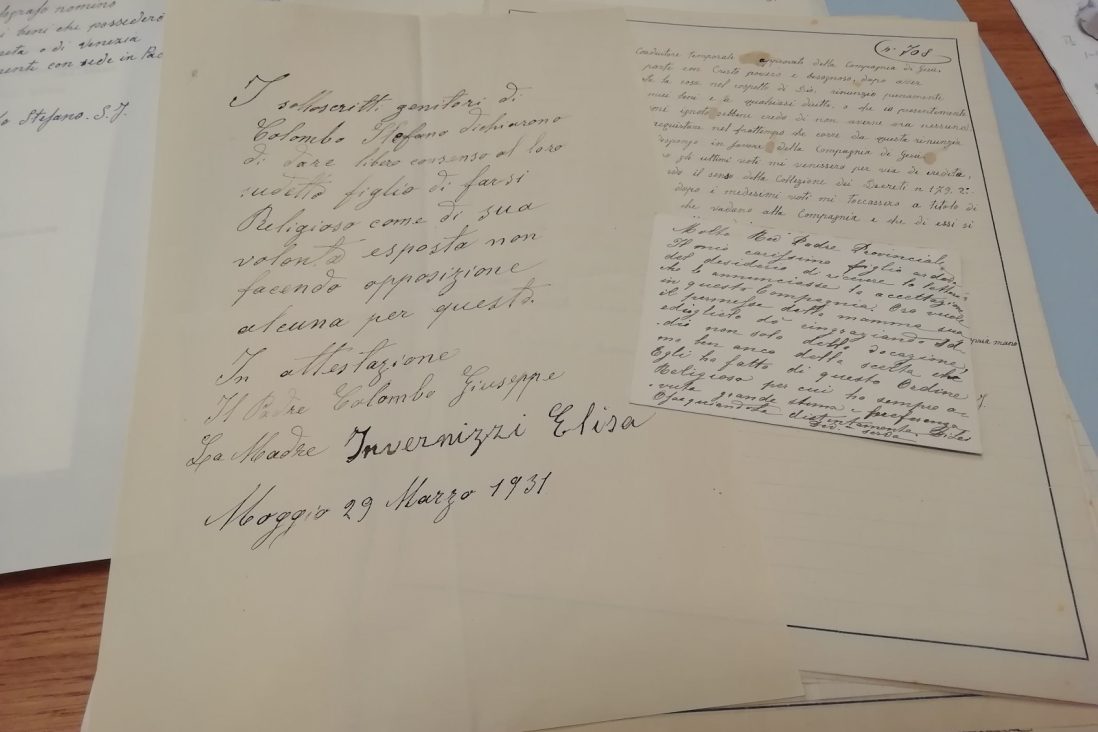 tografo nomino
i beni che possederò
neta o di Venezia
mente con sede in Pa
Stefano. S. J.
I sottoscritti genitori di
Colombo Stefano dichiarono
di dare libero consenso al loro
sudetto figlio di farsi
Religioso come di sua
volontà esposta non
facendo opposizione
alcuna per questo.
In attestazione
Il Padre Colombo Giuseppe
La Madre Invernizzi Elisa
Moggio 29 Marzo 1931
n. 708
Coadiutore temporale approvato della Compagnia di Gesù,
parte con Cristo povero e bisognoso, dopo aver
te la cosa nel cospetto di Dio, rinunzio pienamente
miei beni e a qualsiasi diritto, o che io presentemente
ignoto, sebbene credo di non averne ora nessuno
requistare nel frattempo che corre da questa rinunzia
in favore della Compagnia di Gesù
o gli ultimi voti mi venissero per via di eredità,
do il senso della Collezione dei Decreti n 179. 2:
dopo i medesimi voti mi toccassero a titolo di
che vadano alla Compagnia e che di essi si
Molto Rev Padre Provinciale,
Il mio carissimo figlio ardeva
del desiderio di ricevere la lettera
che le annunciasse la accettazione
in questa Compagnia. Ora vuole
il permesso della mamma sua
e di glielo dò ringraziando Id-
dio non solo della vocazione,
ma ben anco della scelta che
Egli ha fatto di questo Ordine
Religioso per cui ho sempre a-
vuta grande stima e preferenza.
Ossequiandola distintamente
serva
pur mano
J.